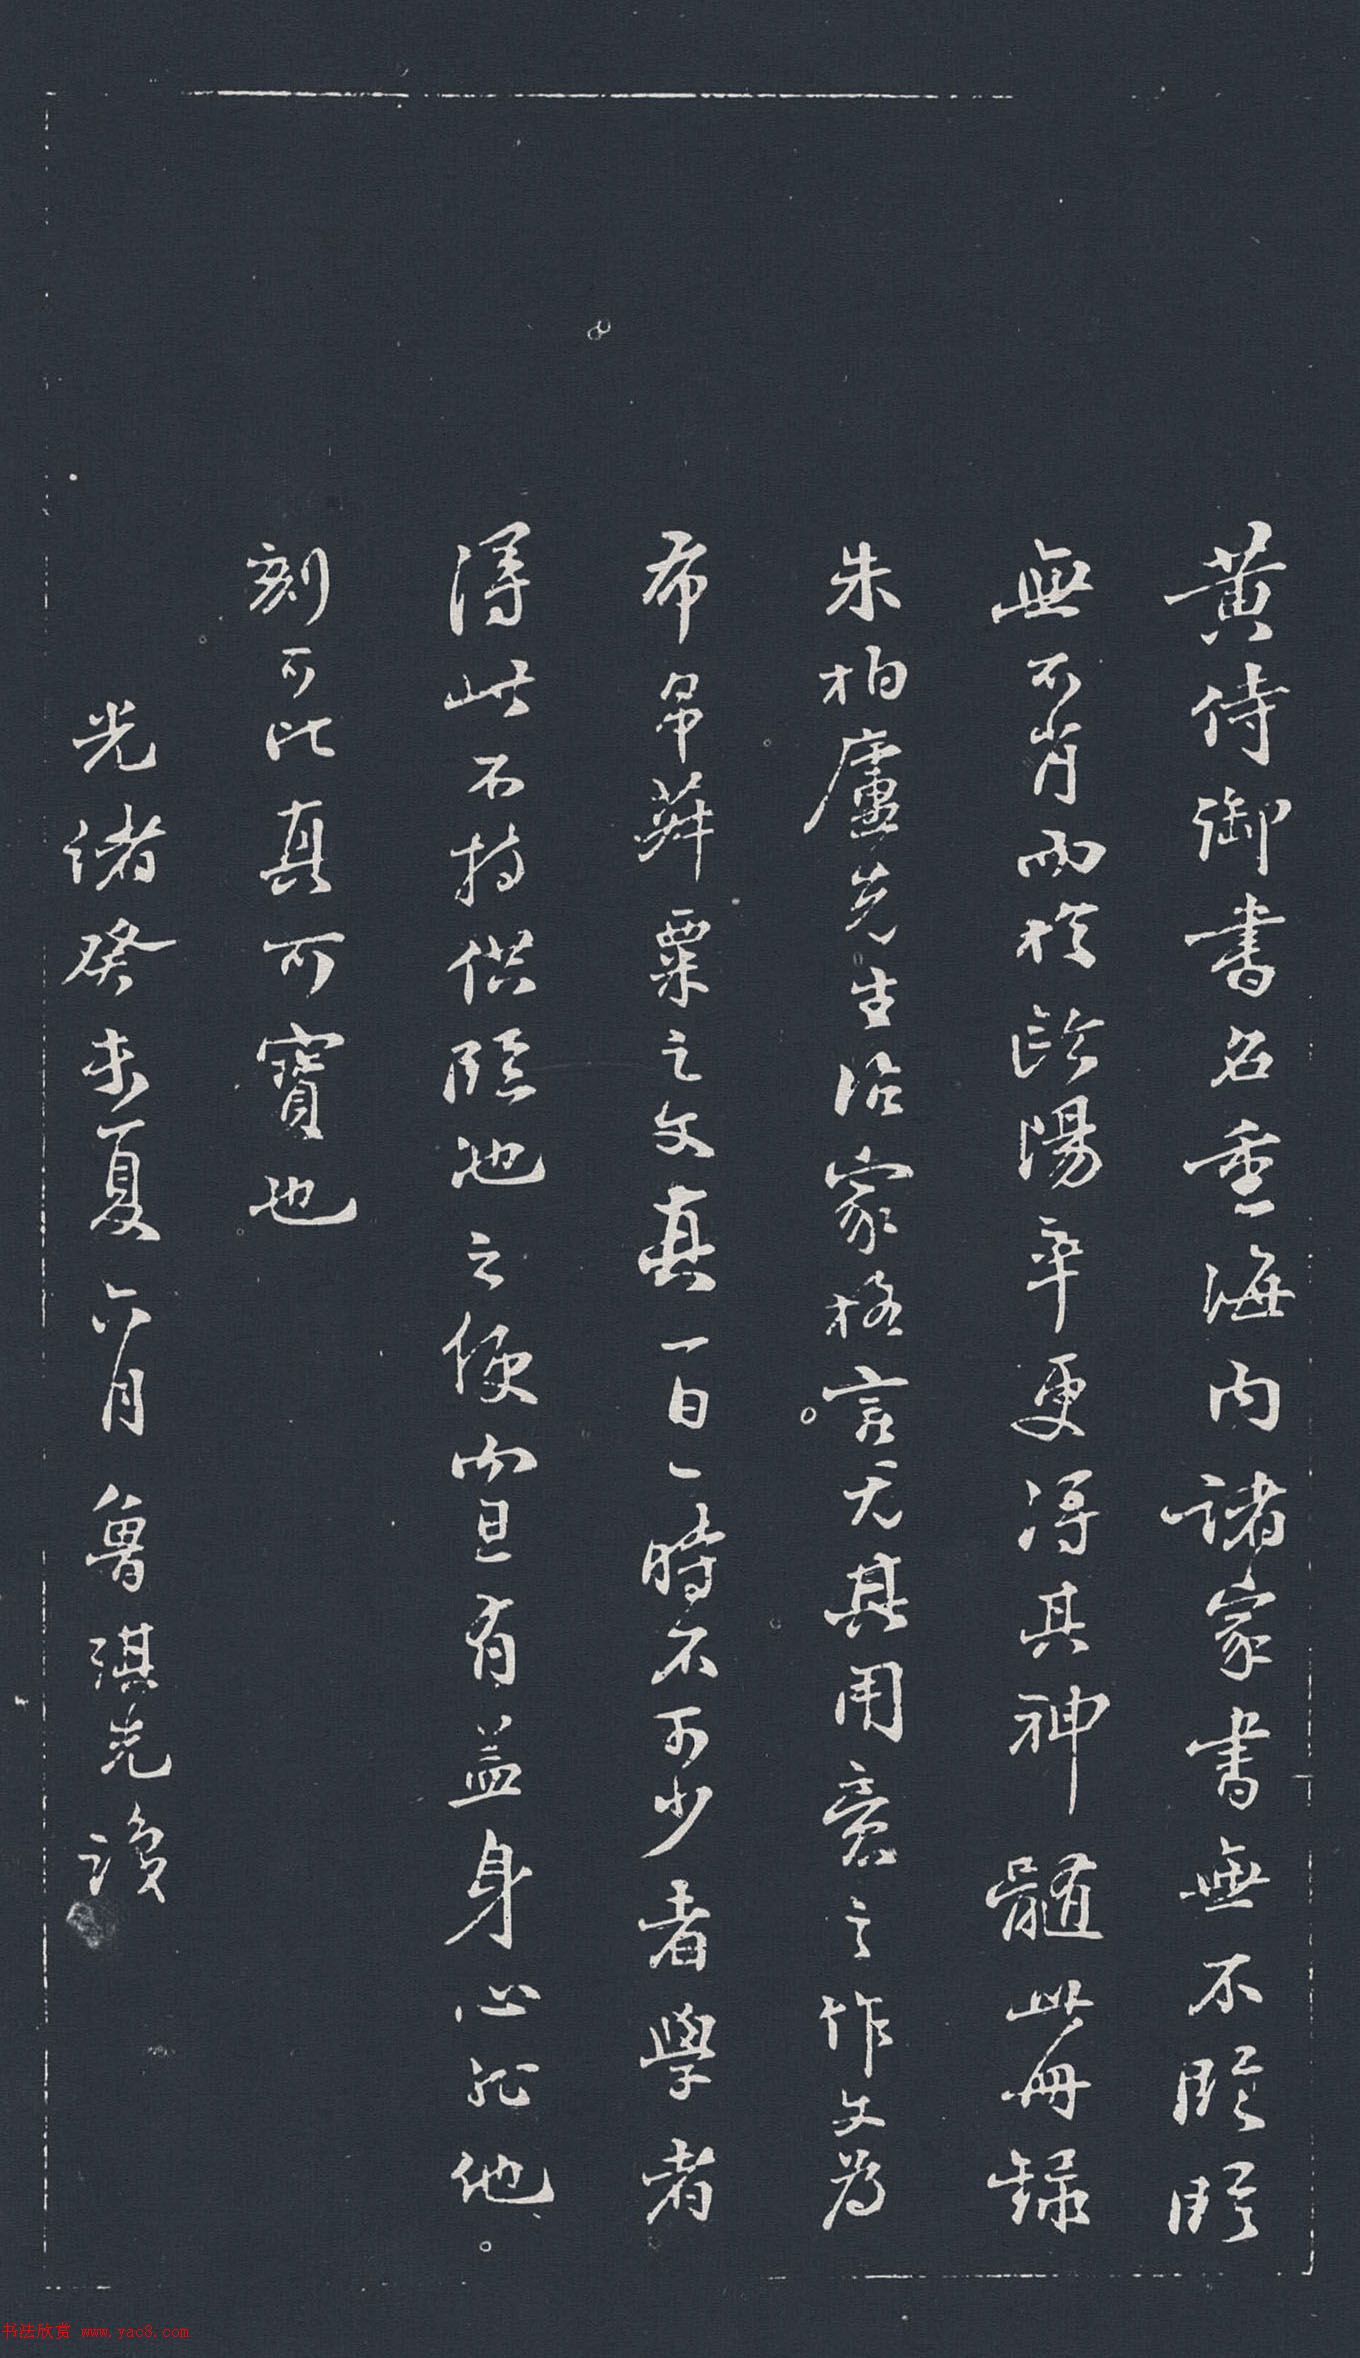 黃侍御書名重海内諸家書無不臨臨
無不肖而於歐陽率更得其神髓此冊錄
朱柏廬先生治家格言尤其用意之作文爲
布帛菽粟之文真一日一時不可少者學者
得此不特供臨池之便而且有益身心非他
刻可比真可寶也
光緒癸未夏六月魯琪光識
书法欣赏 www.yac8.com